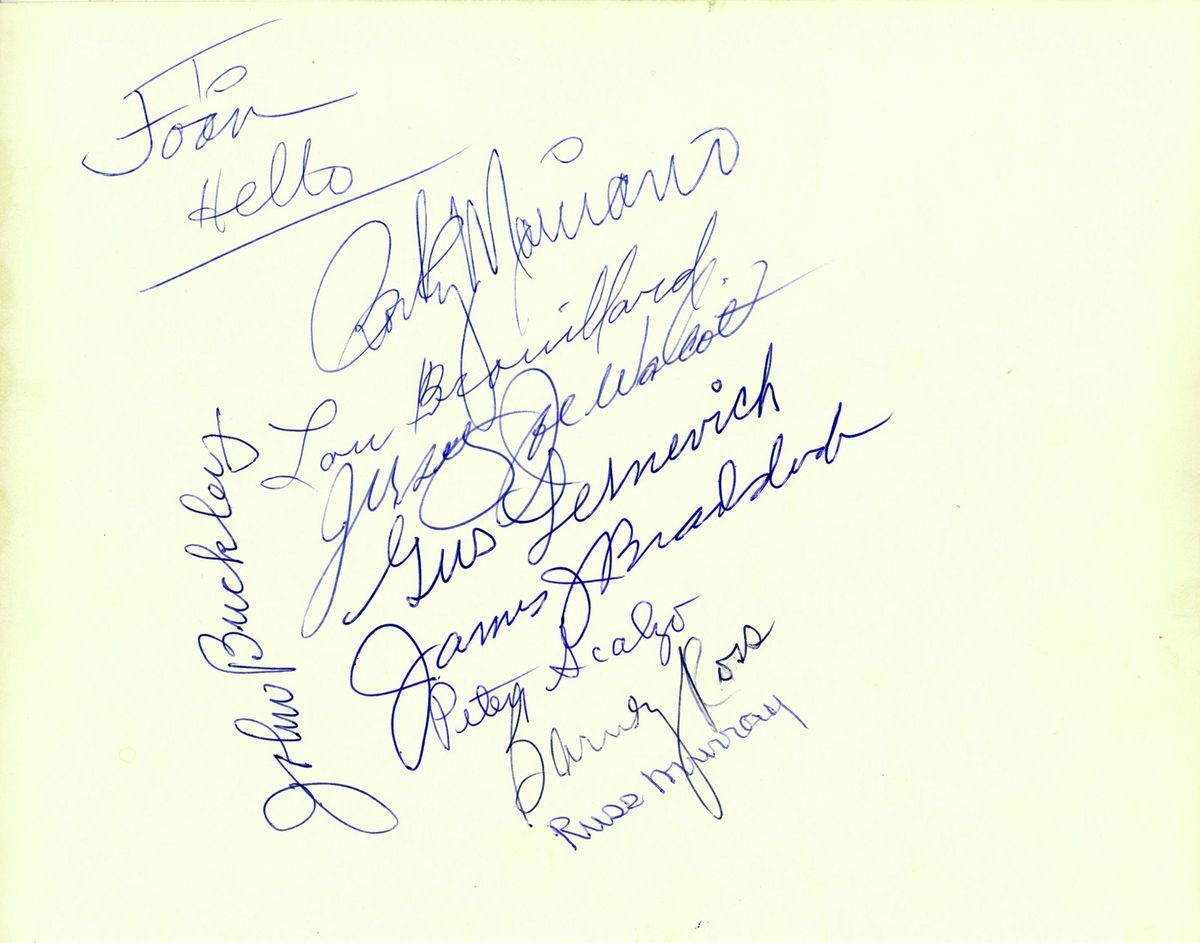 To
Joan
Hello
Rocky Marciano
Lou Brouillard
Jersey Joe Walcott
Gus Lesnevich
James J Braddock
Petey Scalzo
Barney Ross
Russ Murray
John Buckley